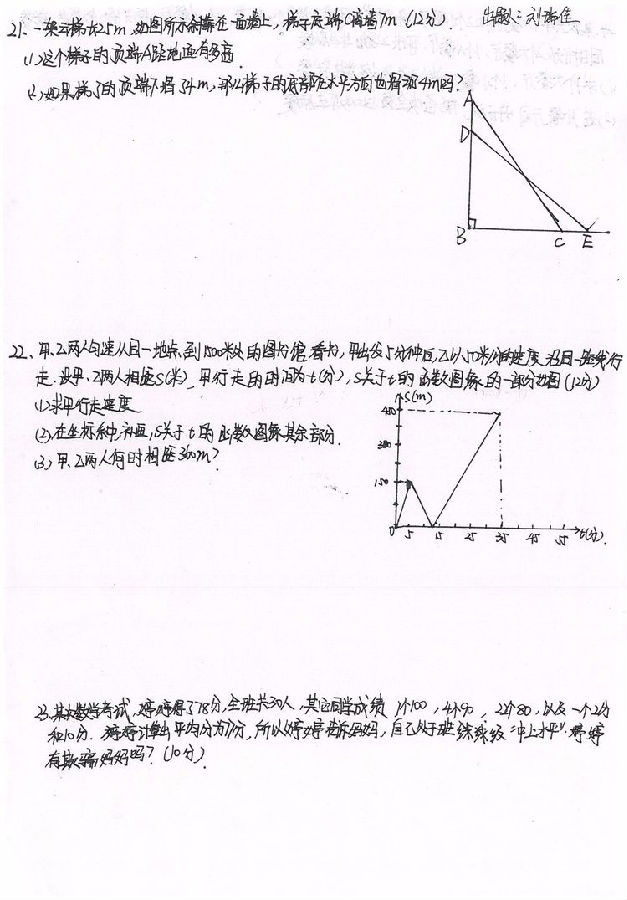 21、一架云梯长25m,如图所示斜靠在一面墙上,梯子底端C离墙7m (12分) 出题:刘
(1)这个梯子的顶端A距地面有多高
(2)如果梯子的顶端下滑了4m,那么梯子的底部在水平方向也滑动4m吗?
A
D
B
C
E
22、甲、乙两人匀速从同一地点到1500米处的图书馆看书,甲出发5分钟后,乙以50米/分的速度沿同一路线行
走.设甲、乙两人相距S(米),甲行走的时间为t(分),S关于t的函数图象的一部分如图(12分)
(1)求甲行走速度
(2)在坐标系中,补画,S关于t的函数图象其余部分.
(3)甲、乙两人何时相距360m?
S(m)
450
150
0
5
15
25
35
45
55
t(分)
23、某次数学考试,婷婷得了78分,全班共30人,其应同学成绩 1个100,4个90,
和10分.婷婷计算出平均分为77分,所以婷婷告诉妈妈,自己处于班级"中上水平"婷婷
有欺骗妈妈吗?(10分)